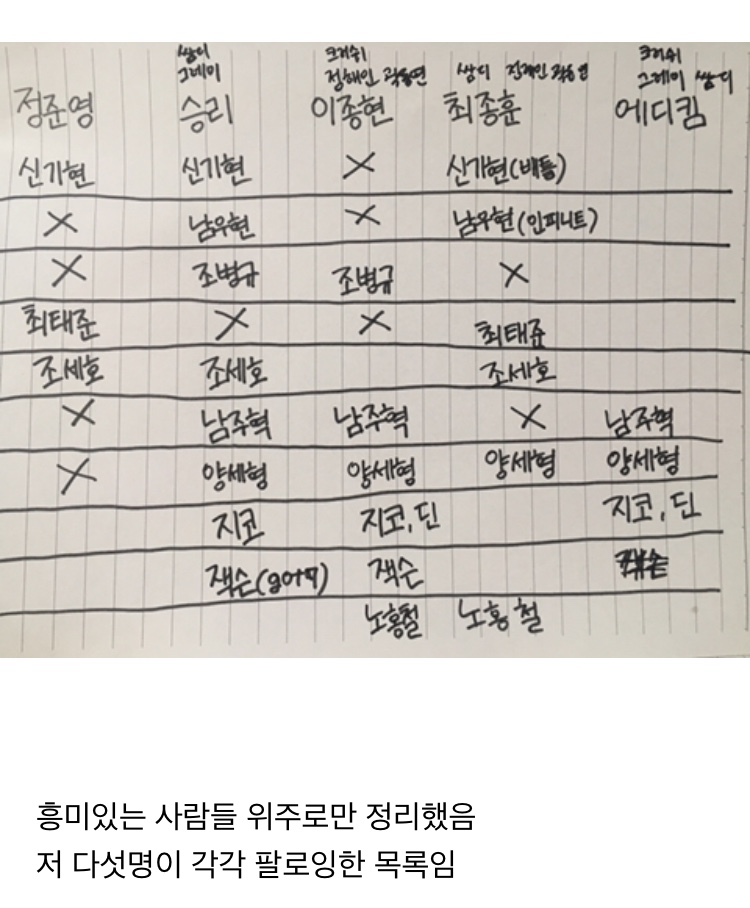 쌈디 크러쉬 크러쉬
그레이 정해인 곽동연 쌈디 정해인 곽동연 그레이 쌈디
정준영 승리 이종현 최종훈 에디킴
신기현 신기현 X 신기현(배틀)
X 남우현 X 남우현(인피니트)
X 조병규 조병규 X
최태준 X X 최태준
조세호 조세호 조세호
X 남주혁 남주혁 X 남주혁
X 양세형 양세형 양세형 양세형
지코 지코, 딘 지코, 딘
잭슨(got7) 잭슨
노홍철 노홍철
흥미있는 사람들 위주로만 정리했음
저 다섯명이 각각 팔로잉한 목록임